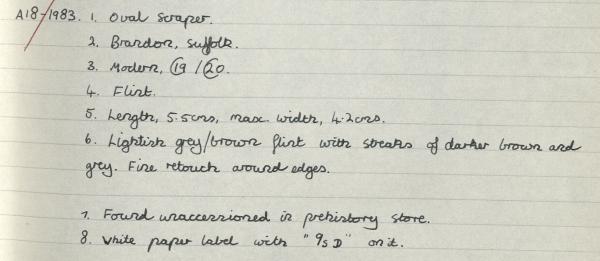 A18-1983. 1. Oval scraper.
2. Brandon, Suffolk.
3. Modern, 19/20.
4. Flint.
5. Length, 5.5cms, max. width, 4.2cms.
6. Lightish grey/brown flint with streaks of darker brown and
grey. Fine retouch around edges.
7. Found unaccessioned in prehistory store.
8. White paper label with "9s D" on it.